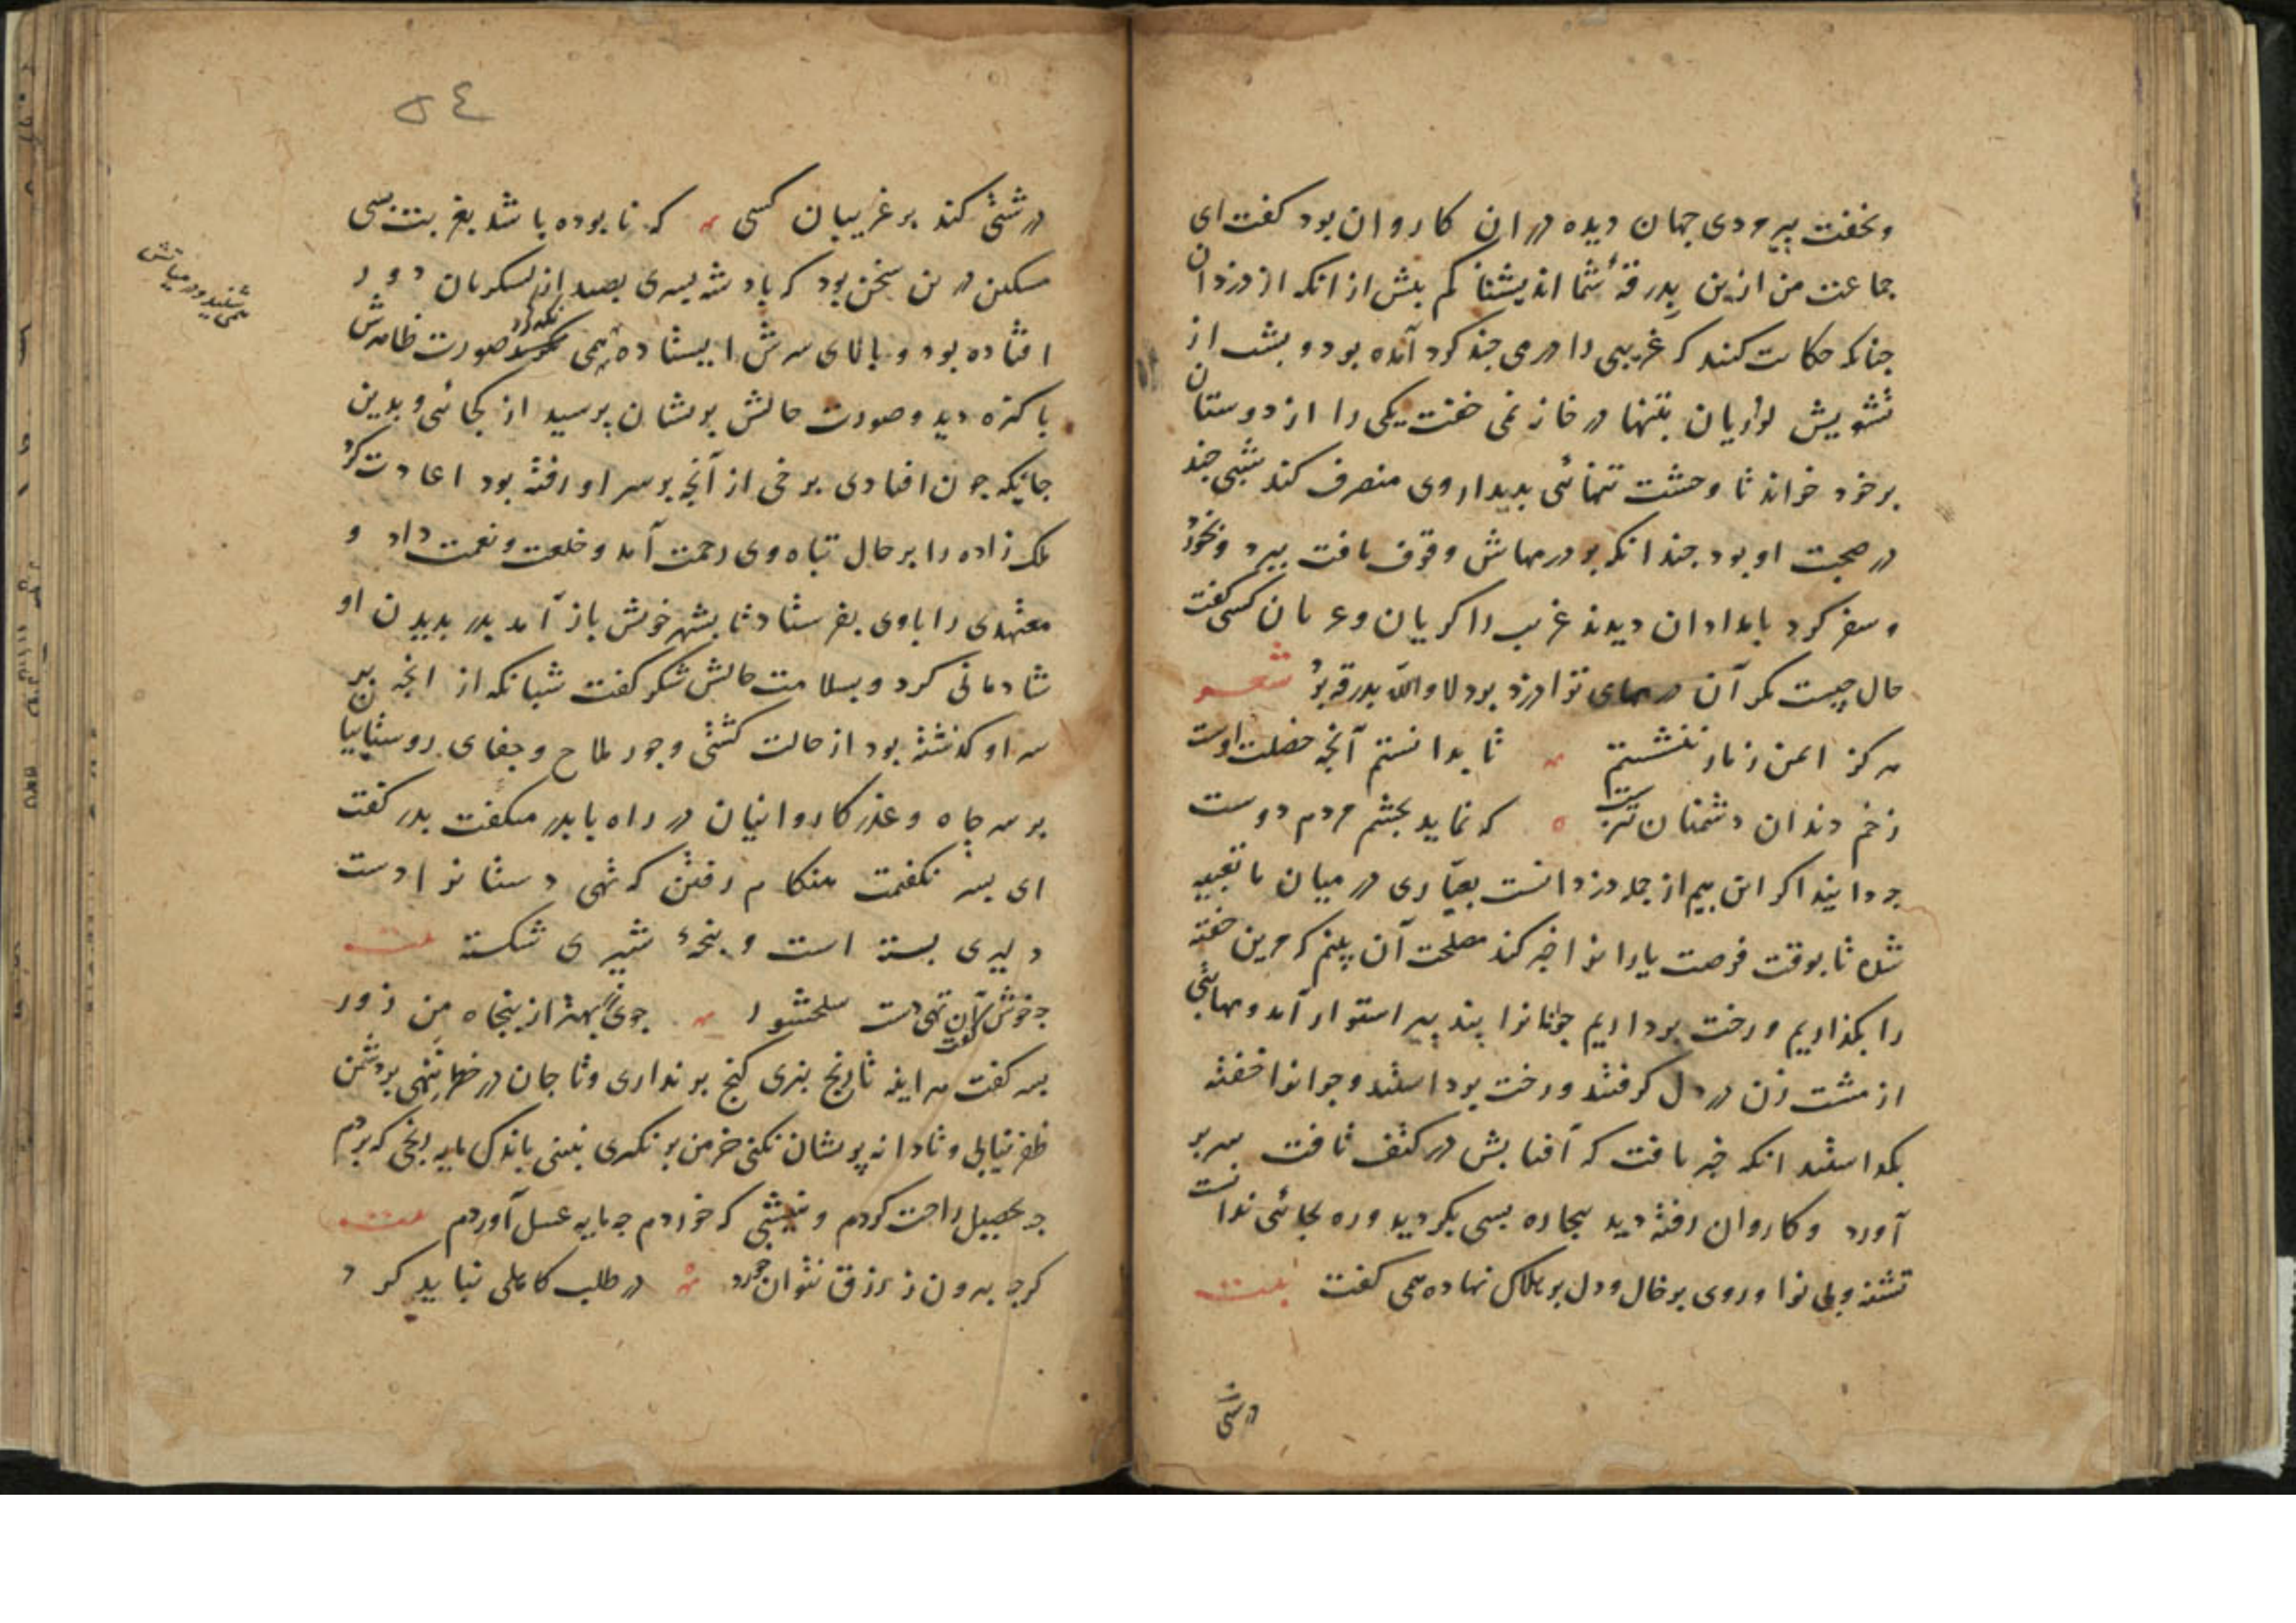 وبخفت پیرمردی جهان دیده در ان کاروان بود کفت ای
جماعت من ازین بدرقهٔ شما اندیشناکم بیش از انکه از دزدان
جنانکه حکایت کنند که غریبی را درمی جند کرد آمده بود و بشب از
تشویش لوریان بتنها در خانه نمی خفت یکی را از دوستان
بر خود خواند تا وحشت تنهائی بدیدار وی منصرف کند شبی جند
در صحبت او بود جندانکه بر درمهاش وقوف یافت ببرد و بخورد
و سفر کرد بامدادان دیدند غریب را کریان و عریان کسی کفت
حال چیست مکر آن درمهای ترا دزد برد لا والله بدرقه برد شعر
هرکز ایمن ز مار ننشستم تا بدانستم آنچه خصلت اوست
زخم دندان دشمنان بترست که نماید بچشم مردم دوست
چه دانید اکر این هم از جمله دزدانست بعیّاری در میان ما تعبیه
شده تا بوقت فرصت یارانرا خبر کند مصلحت آن بینم که مرین خفته
را بکذاریم و رخت برداریم جوانانرا پند پیر استوار آمد و مهابتی
از مشت زن در دل کرفتند و رخت برداشتند و جوانرا خفته
بکذاشتند انکه خبر یافت که آفتابش در کتف تافت سر بر
آورد و کاروان رفته دید بیچاره بسی بکردید و ره بجائی ندانست
تشنه و بی نوا و روی بر خاک و دل بر هلاک نهاده همی کفت بیت
درشتی
٥٤
درشتی کند بر غریبان کسی که نابوده باشد بغربت بسی
مسکین درین سخن بود که پادشه پسری بصید از لشکریان دور
افتاده بود و بالای سرش ایستاده همی نکه کرد صورت ظاهرش
باکیزه دید و صورت حالش پریشان پرسید از کجائی و بدین
جایکه چون افتادی برخی از آنچه بر سر او رفته بود اعادت کرد
ملک زاده را بر حال تباه وی رحمت آمد و خلعت و نعمت داد و
معتمدی را با وی بفرستاد تا بشهر خویش باز آمد پدر بدیدن او
شادمانی کرد و بسلامت حالش شکر کفت شبانکه از انچه بر
سر او کذشته بود از حالت کشتی و جور ملاح و جفای روستاییان
بر سر چاه و غدر کاروانیان در راه با پدر میکفت پدر کفت
ای پسر نکفتمت هنکام رفتن که تهی دستانرا دست
دلیری بسته است و پنجهٔ شیری شکسته بیت
چه خوش کفت آن تهی دست سلحشور جوی زر بهتر از پنجاه من زور
پسر کفت هر اینه تا رنج نبری کنج بر نداری و تا جان در خطر ننهی بر دشمن
ظفر نیابی و تا دانه پریشان نکنی خرمن بر نکیری نبینی باندک مایه رنجی که بردم
چه تحصیل راحت کردم و نیشی که خوردم چه مایه عسل آوردم بیت
کرچه بیرون ز رزق نتوان خورد در طلب کاهلی نباید کرد